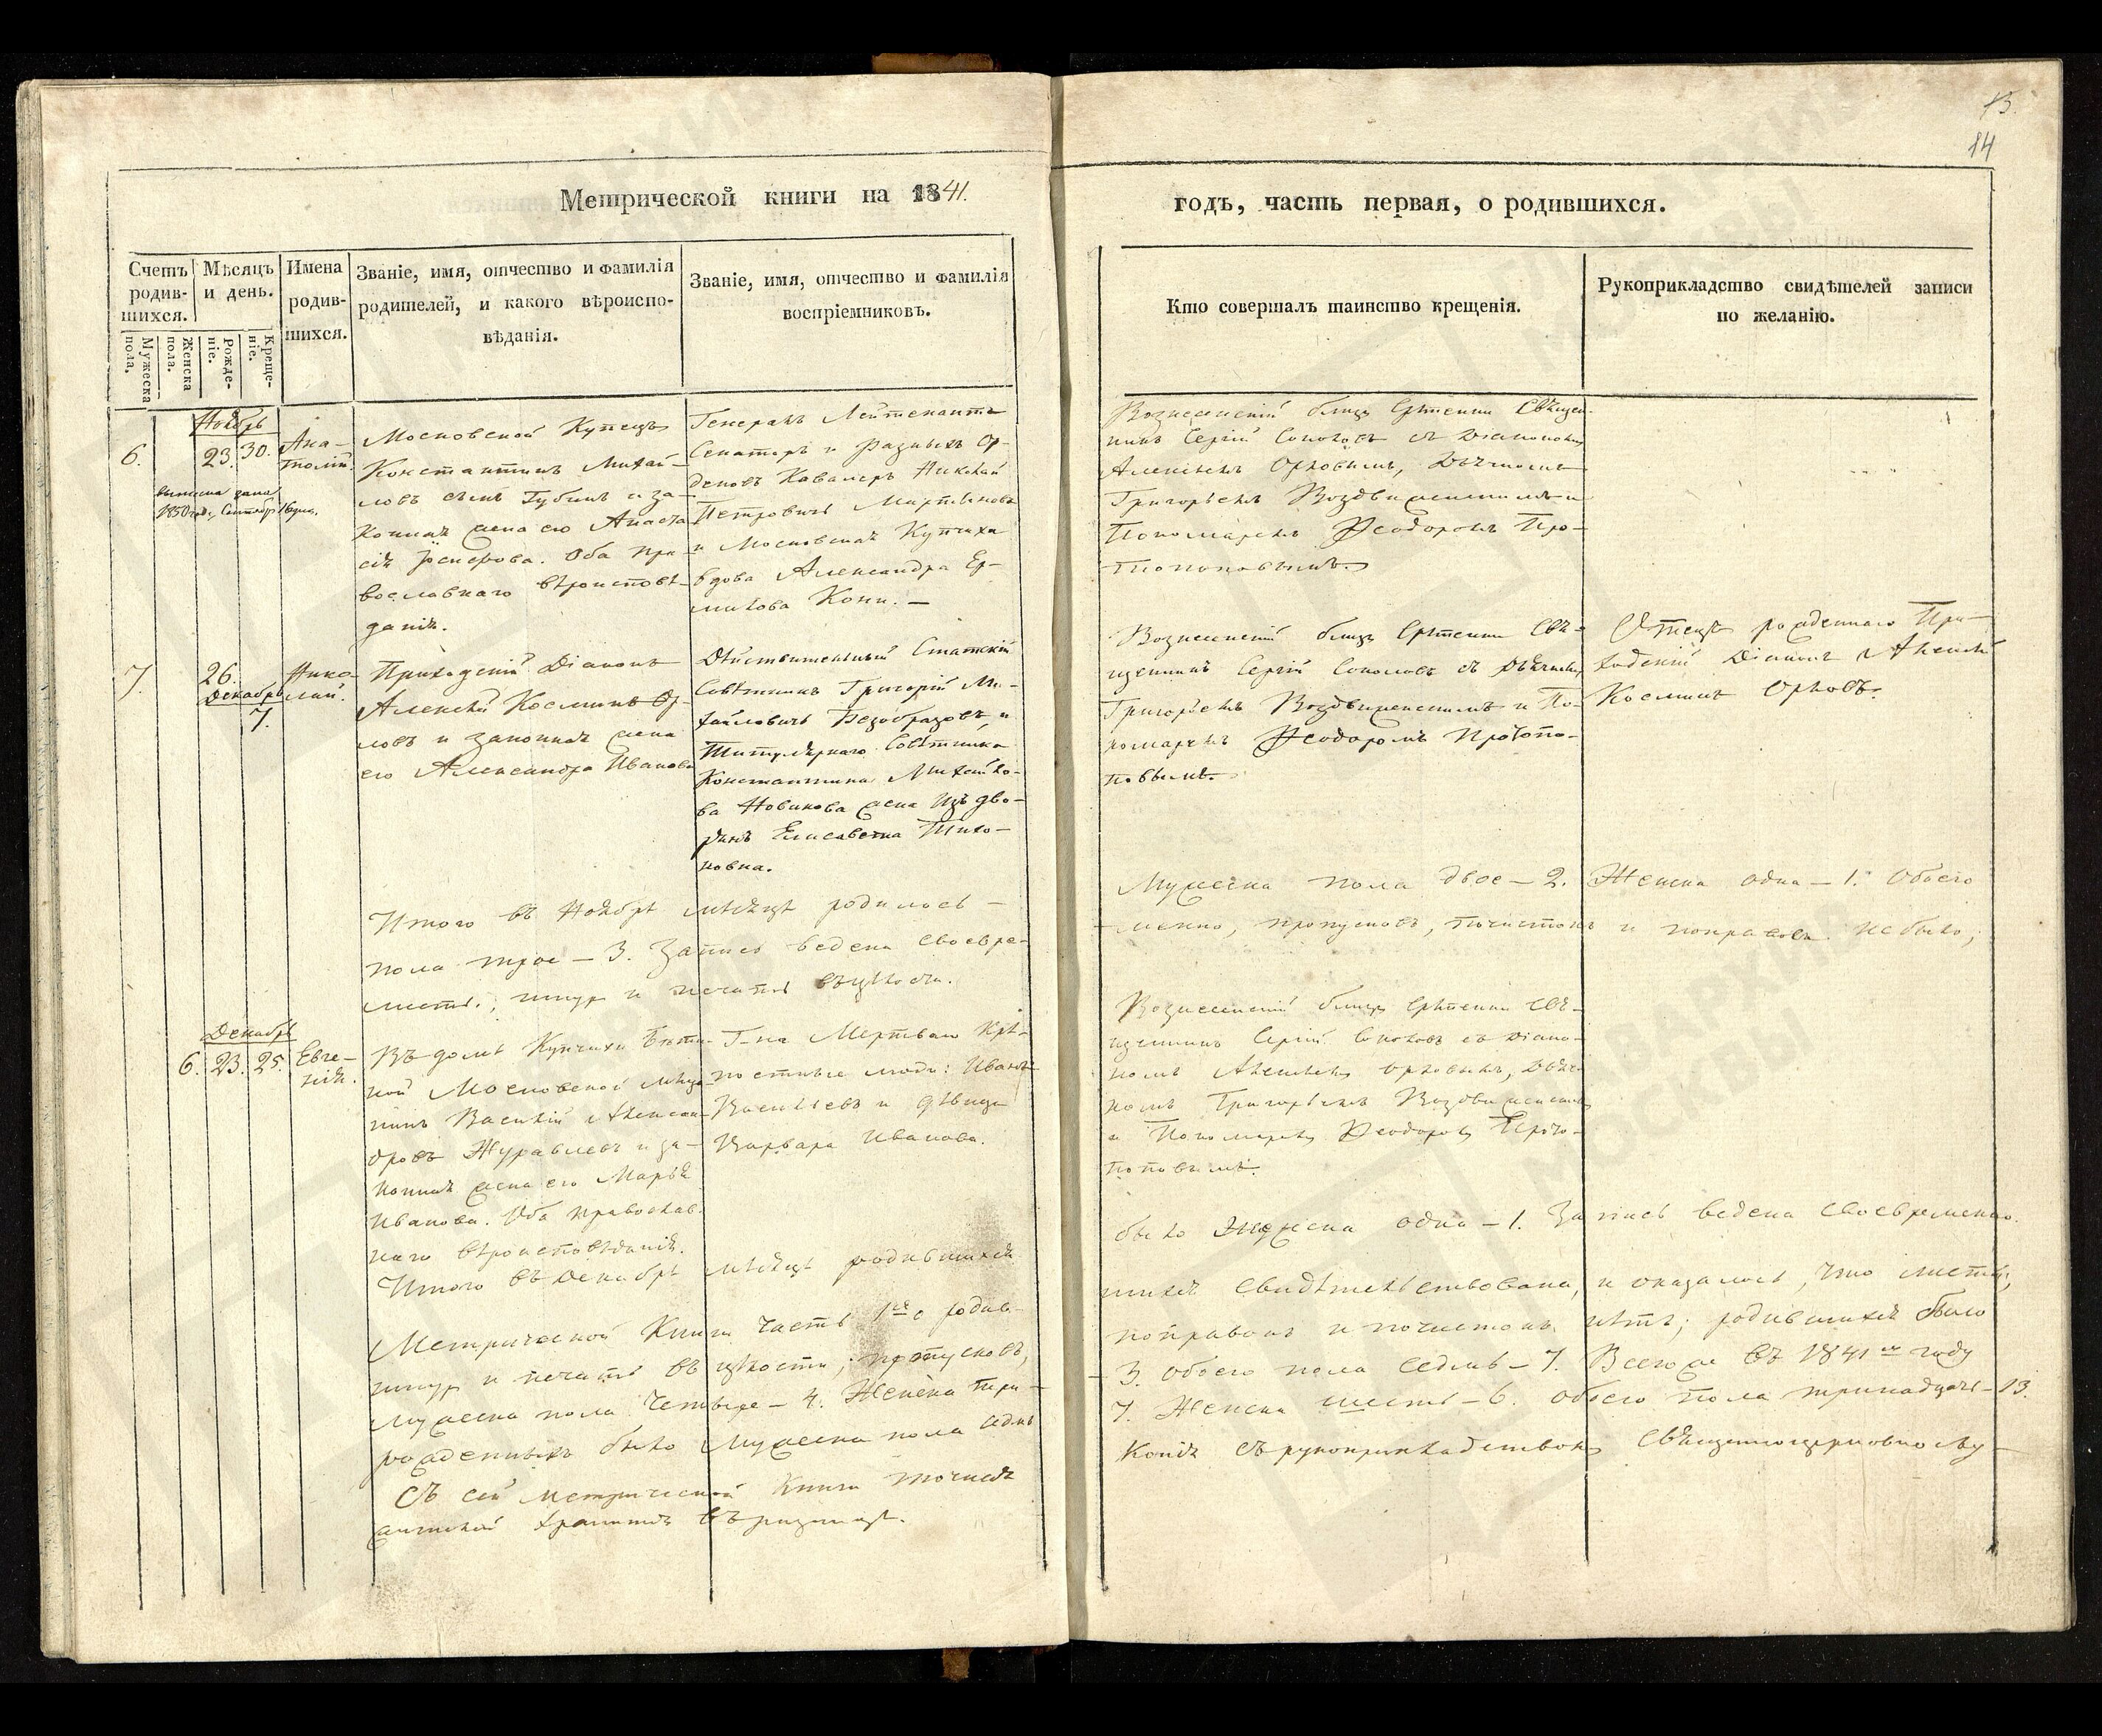 13.
14
Метрической книги на 1841.
годъ, часть первая, о родившихся.
Счетъ родив-шихся.
Мужеска пола.
Женска пола.
Мѣсяцъ и день.
Рожде-ніе.
Креще-ніе.
Имена родив-шихся.
Званіе, имя, отчество и фамилія
родителей, и какого вѣроиспо-
вѣданія.
Званіе, имя, отчество и фамилія
воспріемниковъ.
Кто совершалъ таинство крещенія.
Рукоприкладство свидѣтелей записи
по желанію.
Ноябрь
6.
23.
30.
Ана-
толій.
1850
Московской Купецъ
Константинъ Михай-
ловъ сынъ Губинъ и за-
конная жена его Анаста
сія . Оба пра-
вославнаго вѣроисповѣ-
данія.
Генералъ Лейтенантъ
Сенаторъ и разныхъ Ор-
деновъ Кавалеръ Николай
Петровичь Мартыновъ
и Московская Купчиха
вдова Александра Ер-
милова . —
Вознесенскій близь Срѣтенки Священ-
никъ Сергій Соколовъ съ Діакономъ
Алексѣемъ Орловымъ, Дьячкомъ
Григорьемъ Воздвиженскимъ и
Пономаремъ Ѳеодоромъ Про-
топоповымъ.
7.
26.
Декабрь
7.
Нико-
лай.
Приходскій Діаконъ
Алексѣй Косминъ Ор-
ловъ и законная жена
его Александра Иванова
Дѣйствительный Статскій
Совѣтникъ Григорій Ми-
хайловичь Безобразовъ, и
Титулярнаго Совѣтника
Константина Михайло-
ва Новикова жена Изъ дво-
рянъ Елисавета Тихо-
новна.
Вознесенскій близь Срѣтенки Свя-
щенникъ Сергій Соколовъ съ Дьячкомъ
Григорьемъ Воздвиженскимъ и По-
номаремъ Ѳеодоромъ Протопо-
повымъ.
Отецъ рожденнаго При-
ходскій Діаконъ Алексѣй
Косминъ Орловъ.
Итого въ Ноябрѣ мѣсяцѣ родилось —
Мужеска пола двое — 2. Женска одна — 1. Обоего
пола трое — 3. Запись ведена своевре-
менно, пропусковъ, почистокъ и поправокъ небыло,
листы, шнуръ и печать въ цѣлости.
Декабрь
6.
23.
25.
Евге-
нія.
Въ домѣ Купчихи
ной Московской мѣща
нинъ Василій Алексан-
дровъ Журавлевъ и за-
конная жена его Марья
Иванова. Оба православ-
наго вѣроисповѣданія.
Г-на Мертваго Крѣ-
постные люди: Иванъ
Васильевъ и дѣвица
Варвара Иванова.
Вознесенскій близь Срѣтенки Свя-
щенникъ Сергій Соколовъ съ Діако-
номъ Алексѣемъ Орловымъ, Дьяч-
комъ Григорьемъ Воздвиженскимъ
и Пономаремъ Ѳеодоромъ Прото-
поповымъ.
Итого въ Декабрѣ мѣсяцѣ родившихся
было Женска одна — 1. Запись ведена своевременно.
Метрической Книги часть 1ая о родив-
шихся свидѣтельствована, и оказалось, что листы,
шнуръ и печать въ цѣлости; пропусковъ,
поправокъ и почистокъ нѣтъ; родившихся было
Мужеска пола четыре — 4. Женска три —
3. обоего пола седмь — 7. Всего же въ 1841мъ году
рожденныхъ было Мужеска пола седмь
7. Женска шесть — 6. обоего пола тринадцать — 13.
Съ сей метрической Книги точная
Копія съ рукоприкладствомъ Священноцерковнослу-
жителей хранится въ ризницѣ.